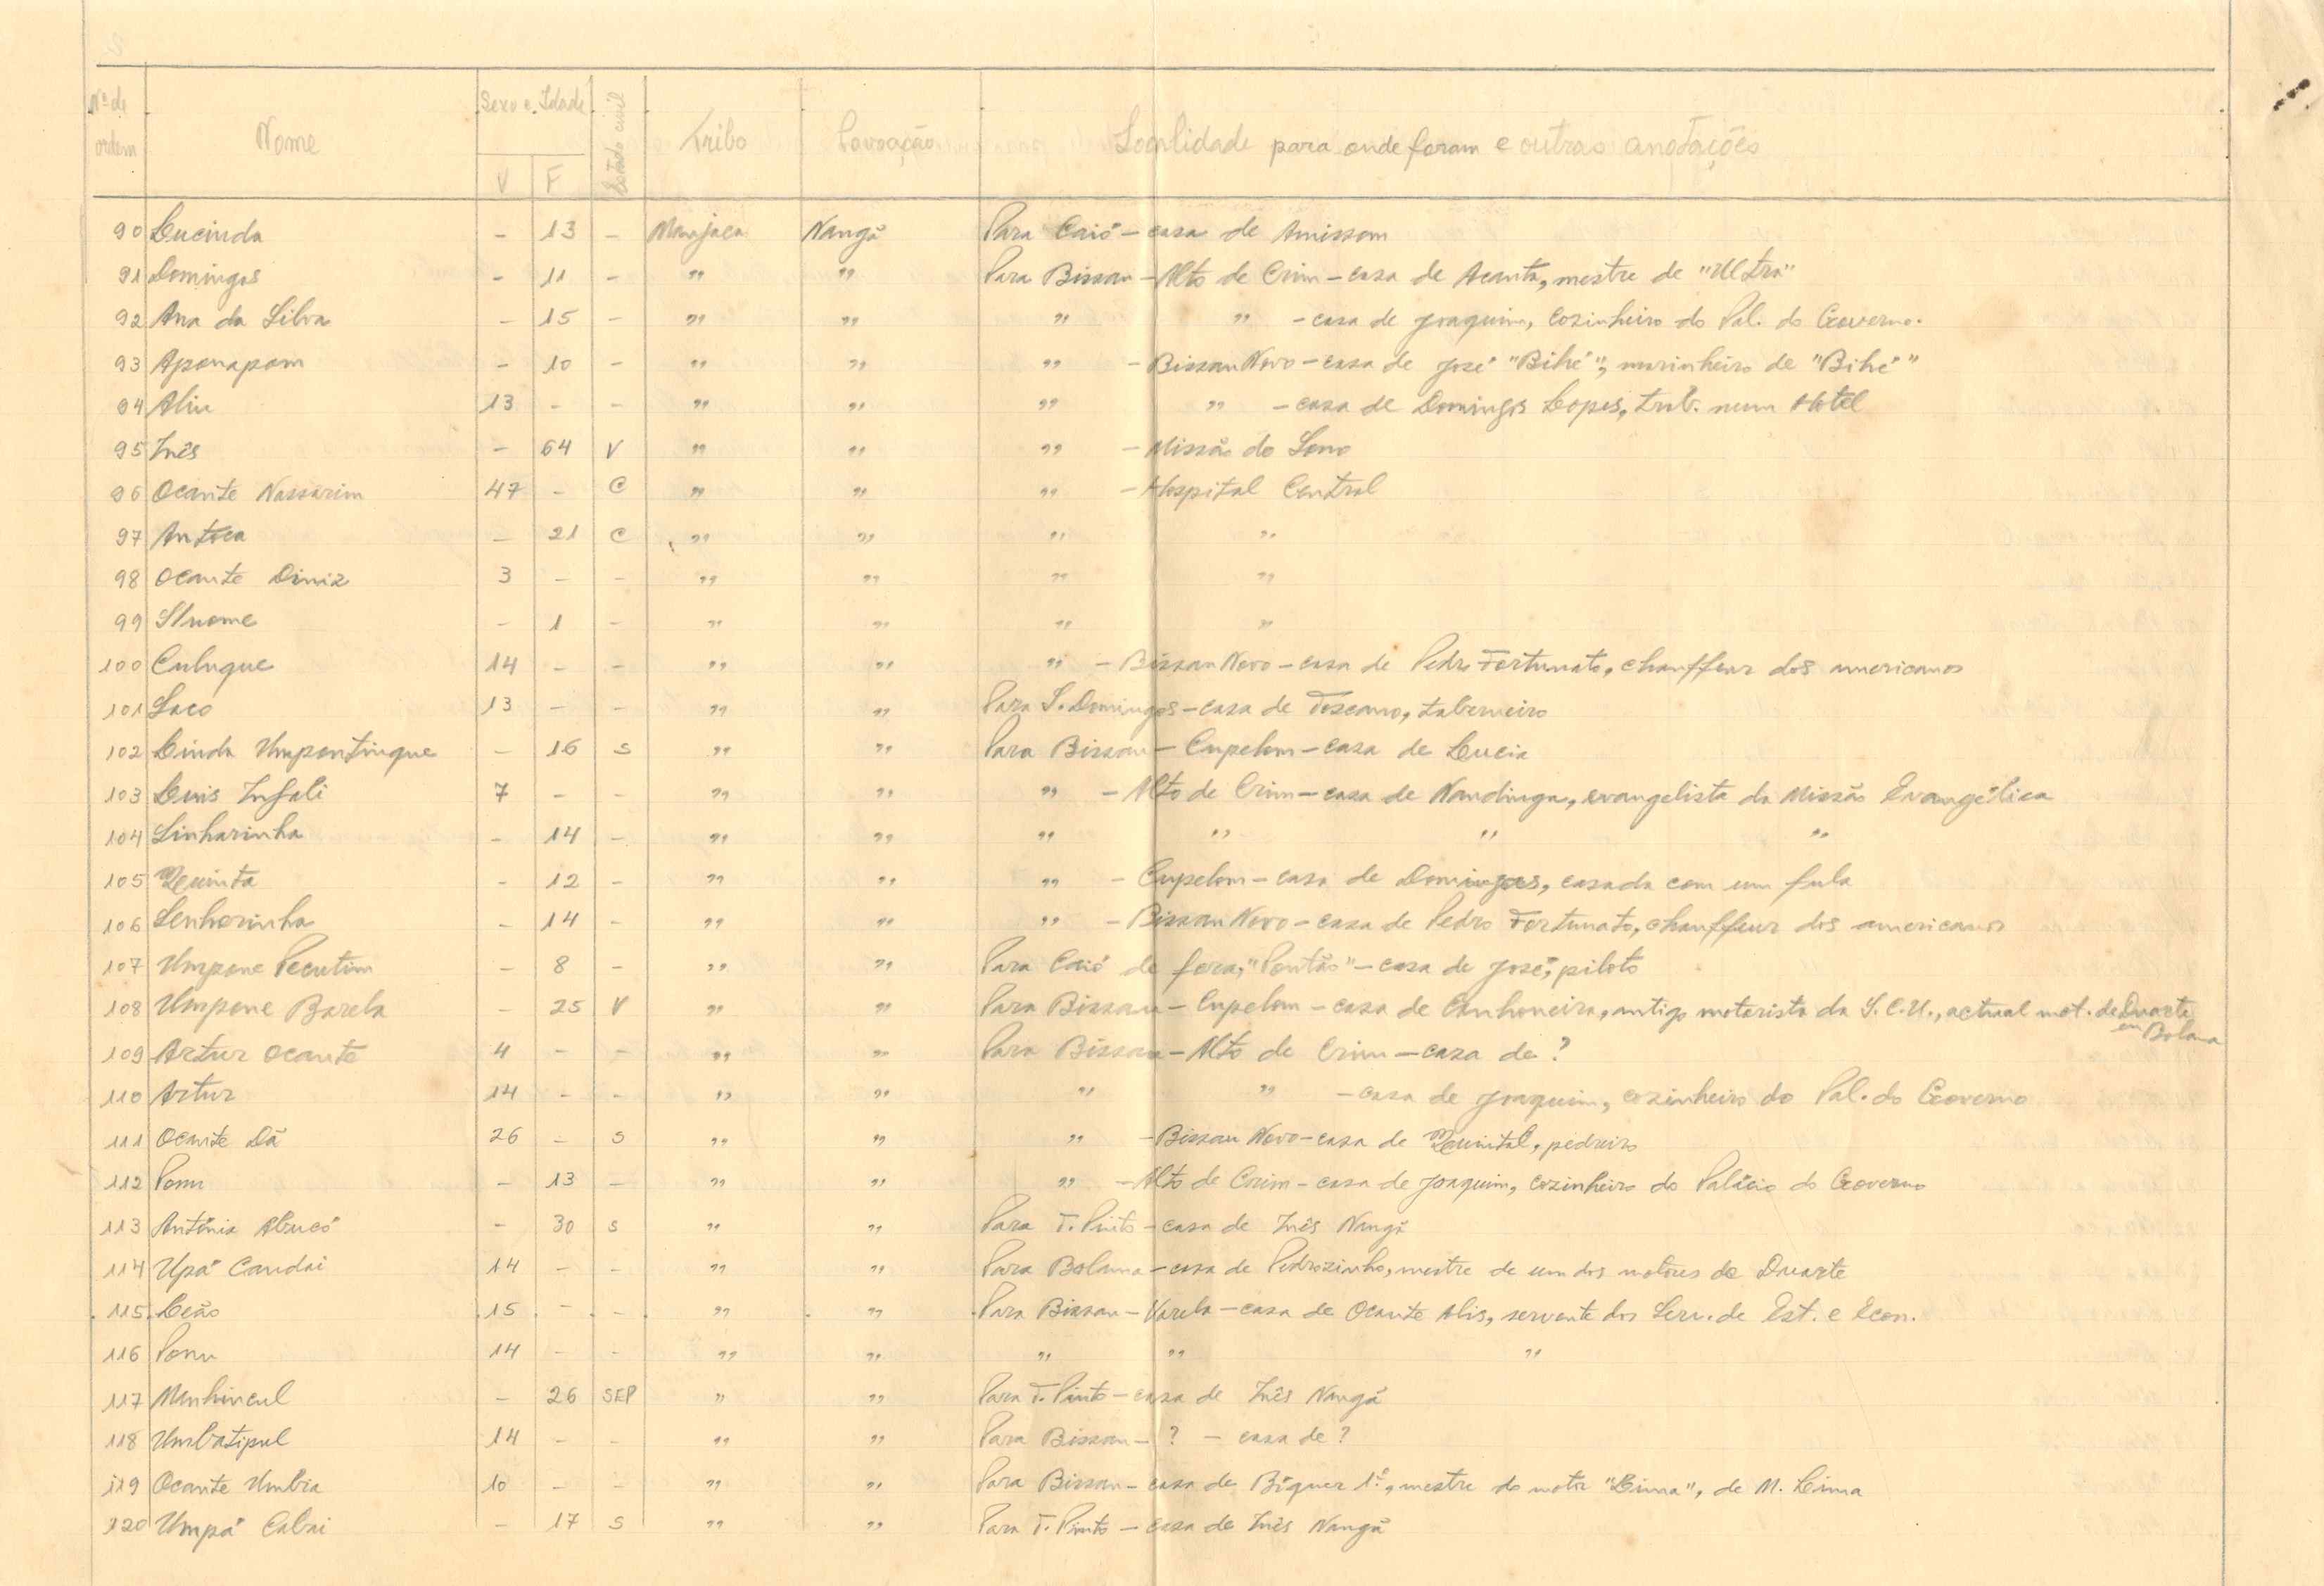 Nº de ordem | Nome | Sexo e Idade V F | Estado civil | Tribo | Povoação | Localidade para onde foram e outras anotações
90 Lucinda - 13 - Manjaca Nangã Para Caió - casa de Amissom
91 Domingas - 11 - " " Para Bissau - Alto de Crim - casa de Acanto, mestre de "Ultra"
92 Ana da Silva - 15 - " " " " - casa de Joaquim, cozinheiro do Pal. do Governo.
93 Aponapom - 10 - " " " - Bissau Novo - casa de José "Bihé", marinheiro de "Bihé"
94 Aliu 13 - - " " " " - casa de Domingos Lopes, trab. num Hotel
95 Inês - 64 V " " " - Missão do Sono
96 Ocante Nassarim 47 - C " " " - Hospital Central
97 Antoca - 21 C " " " "
98 Ocante Diniz 3 - - " " " "
99 S/nome - 1 - " " " "
100 Culuque 14 - - " " " - Bissau Novo - casa de Pedro Fortunato, chauffeur dos americanos
101 Saco 13 - - " " Para S. Domingos - casa de Toscano, taberneiro
102 Linda Umpontinque - 16 s " " Para Bissau - Cupelom - casa de Lucia
103 Luis Infali 7 - - " " " - Alto de Crim - casa de Nandinga, evangelista da Missão Evangélica
104 Linharinha - 14 - " " " " " "
105 Quinta - 12 - " " " - Cupelom - casa de Domingas, casada com um fula
106 Senhorinha - 14 - " " " - Bissau Novo - casa de Pedro Fortunato, chauffeur dos americanos
107 Umpone Pecutim - 8 - " " Para Caió de fora, "Pontão" - casa de José, piloto
108 Umpone Barela - 25 V " " Para Bissau - Cupelom - casa de Canhoneira, antigo motorista da S.C.U., actual mot. de Duarte em Bolama
109 Artur Ocante 4 - - " " Para Bissau - Alto de Crim - casa de ?
110 Artur 14 - - " " " " - casa de Joaquim, cozinheiro do Pal. do Governo
111 Ocante Dã 26 - s " " " - Bissau Novo - casa de Quintal, pedreiro
112 Ponu - 13 - " " " - Alto de Crim - casa de Joaquim, cozinheiro do Palácio do Governo
113 Antónia Abucó - 30 s " " Para T. Pinto - casa de Inês Nangã
114 Upá Candai 14 - - " " Para Bolama - casa de Pedrozinho, mestre de um dos motores de Duarte
115 Leão 15 - - " " Para Bissau - Varela - casa de Ocante Alis, servente dos Serv. de Est. e Econ.
116 Ponu 14 - - " " " " "
117 Munhincul - 26 SEP " " Para T. Pinto - casa de Inês Nangã
118 Umbatipul 14 - - " " Para Bissau - ? - casa de ?
119 Ocante Umbia 10 - - " " Para Bissau - casa de Biquer 1º, mestre do motor "Lima", de M. Lima
120 Umpá Cabai - 17 s " " Para T. Pinto - casa de Inês Nangã